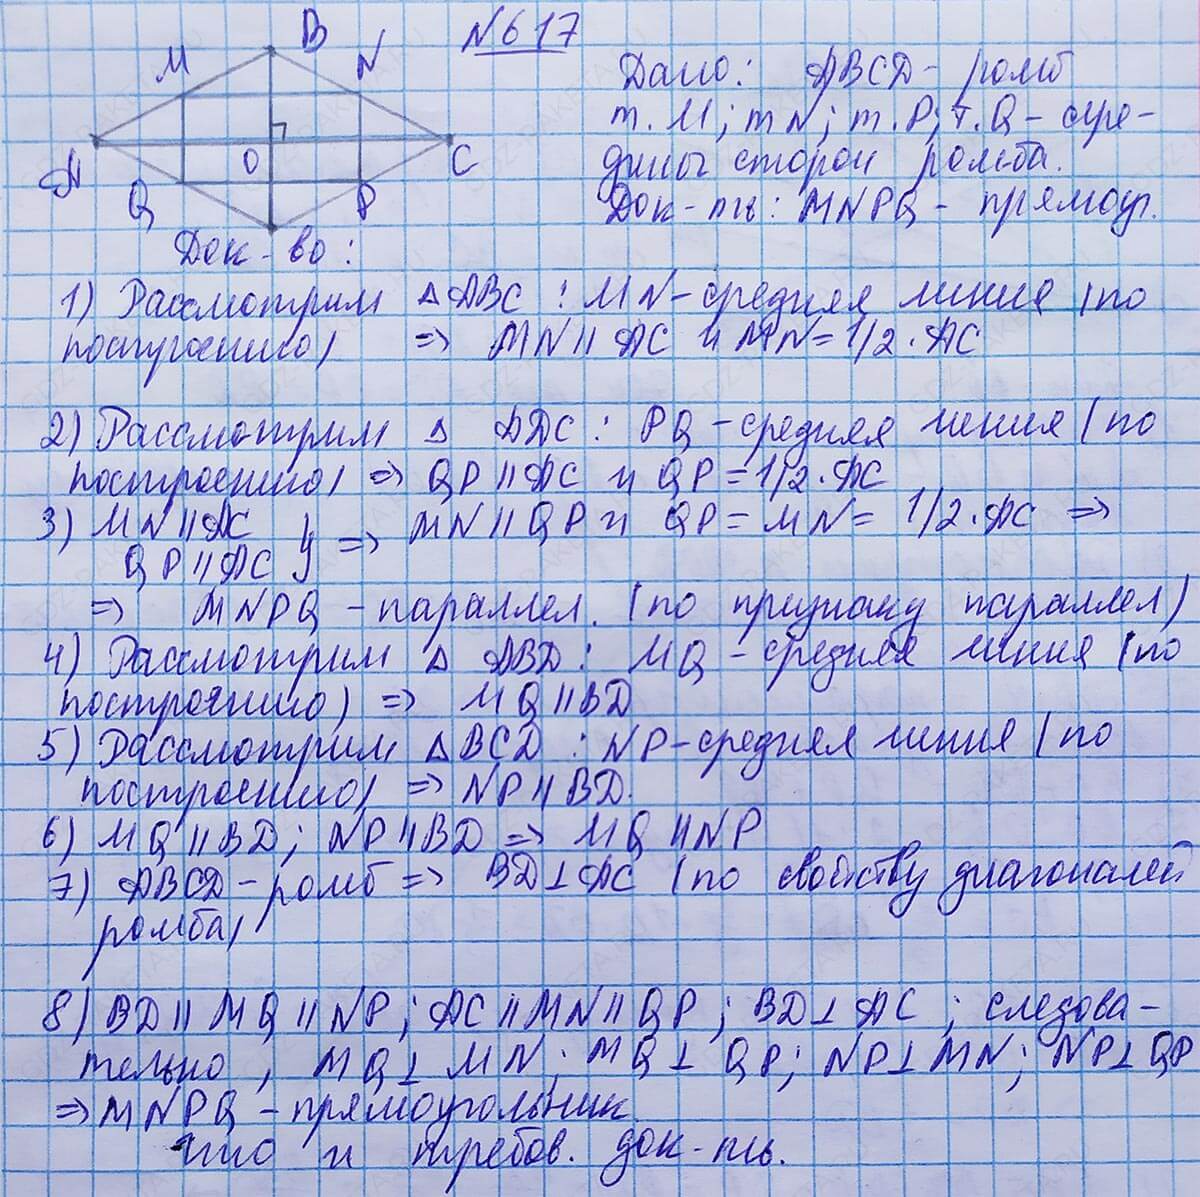 N617
B
M
N
A
O
C
Q
P
Дано: ABCD - ромб
т. M; т N; т. P; т. Q - сере-
дины сторон ромба.
Док-ть: MNPQ - прямоуг.
Док-во:
1) Рассмотрим △ABC: MN - средняя линия (по
построению) => MN || AC и MN = 1/2 · AC
2) Рассмотрим △ ADC: PQ - средняя линия (по
построению) => QP || AC и QP = 1/2 · AC
3) MN || AC
QP || AC } => MN || QP и QP = MN = 1/2 · AC =>
=> MNPQ - параллел. (по признаку параллел)
4) Рассмотрим △ ABD: MQ - средняя линия (по
построению) => MQ || BD
5) Рассмотрим △BCD: NP - средняя линия (по
построению) => NP || BD.
6) MQ || BD; NP || BD => MQ || NP
7) ABCD - ромб => BD ⊥ AC (по свойству диагоналей
ромба)
8) BD || MQ || NP; AC || MN || QP; BD ⊥ AC; следова-
тельно, MQ ⊥ MN; MQ ⊥ QP; NP ⊥ MN; NP ⊥ QP
=> MNPQ - прямоугольник
что и требов. док-ть.